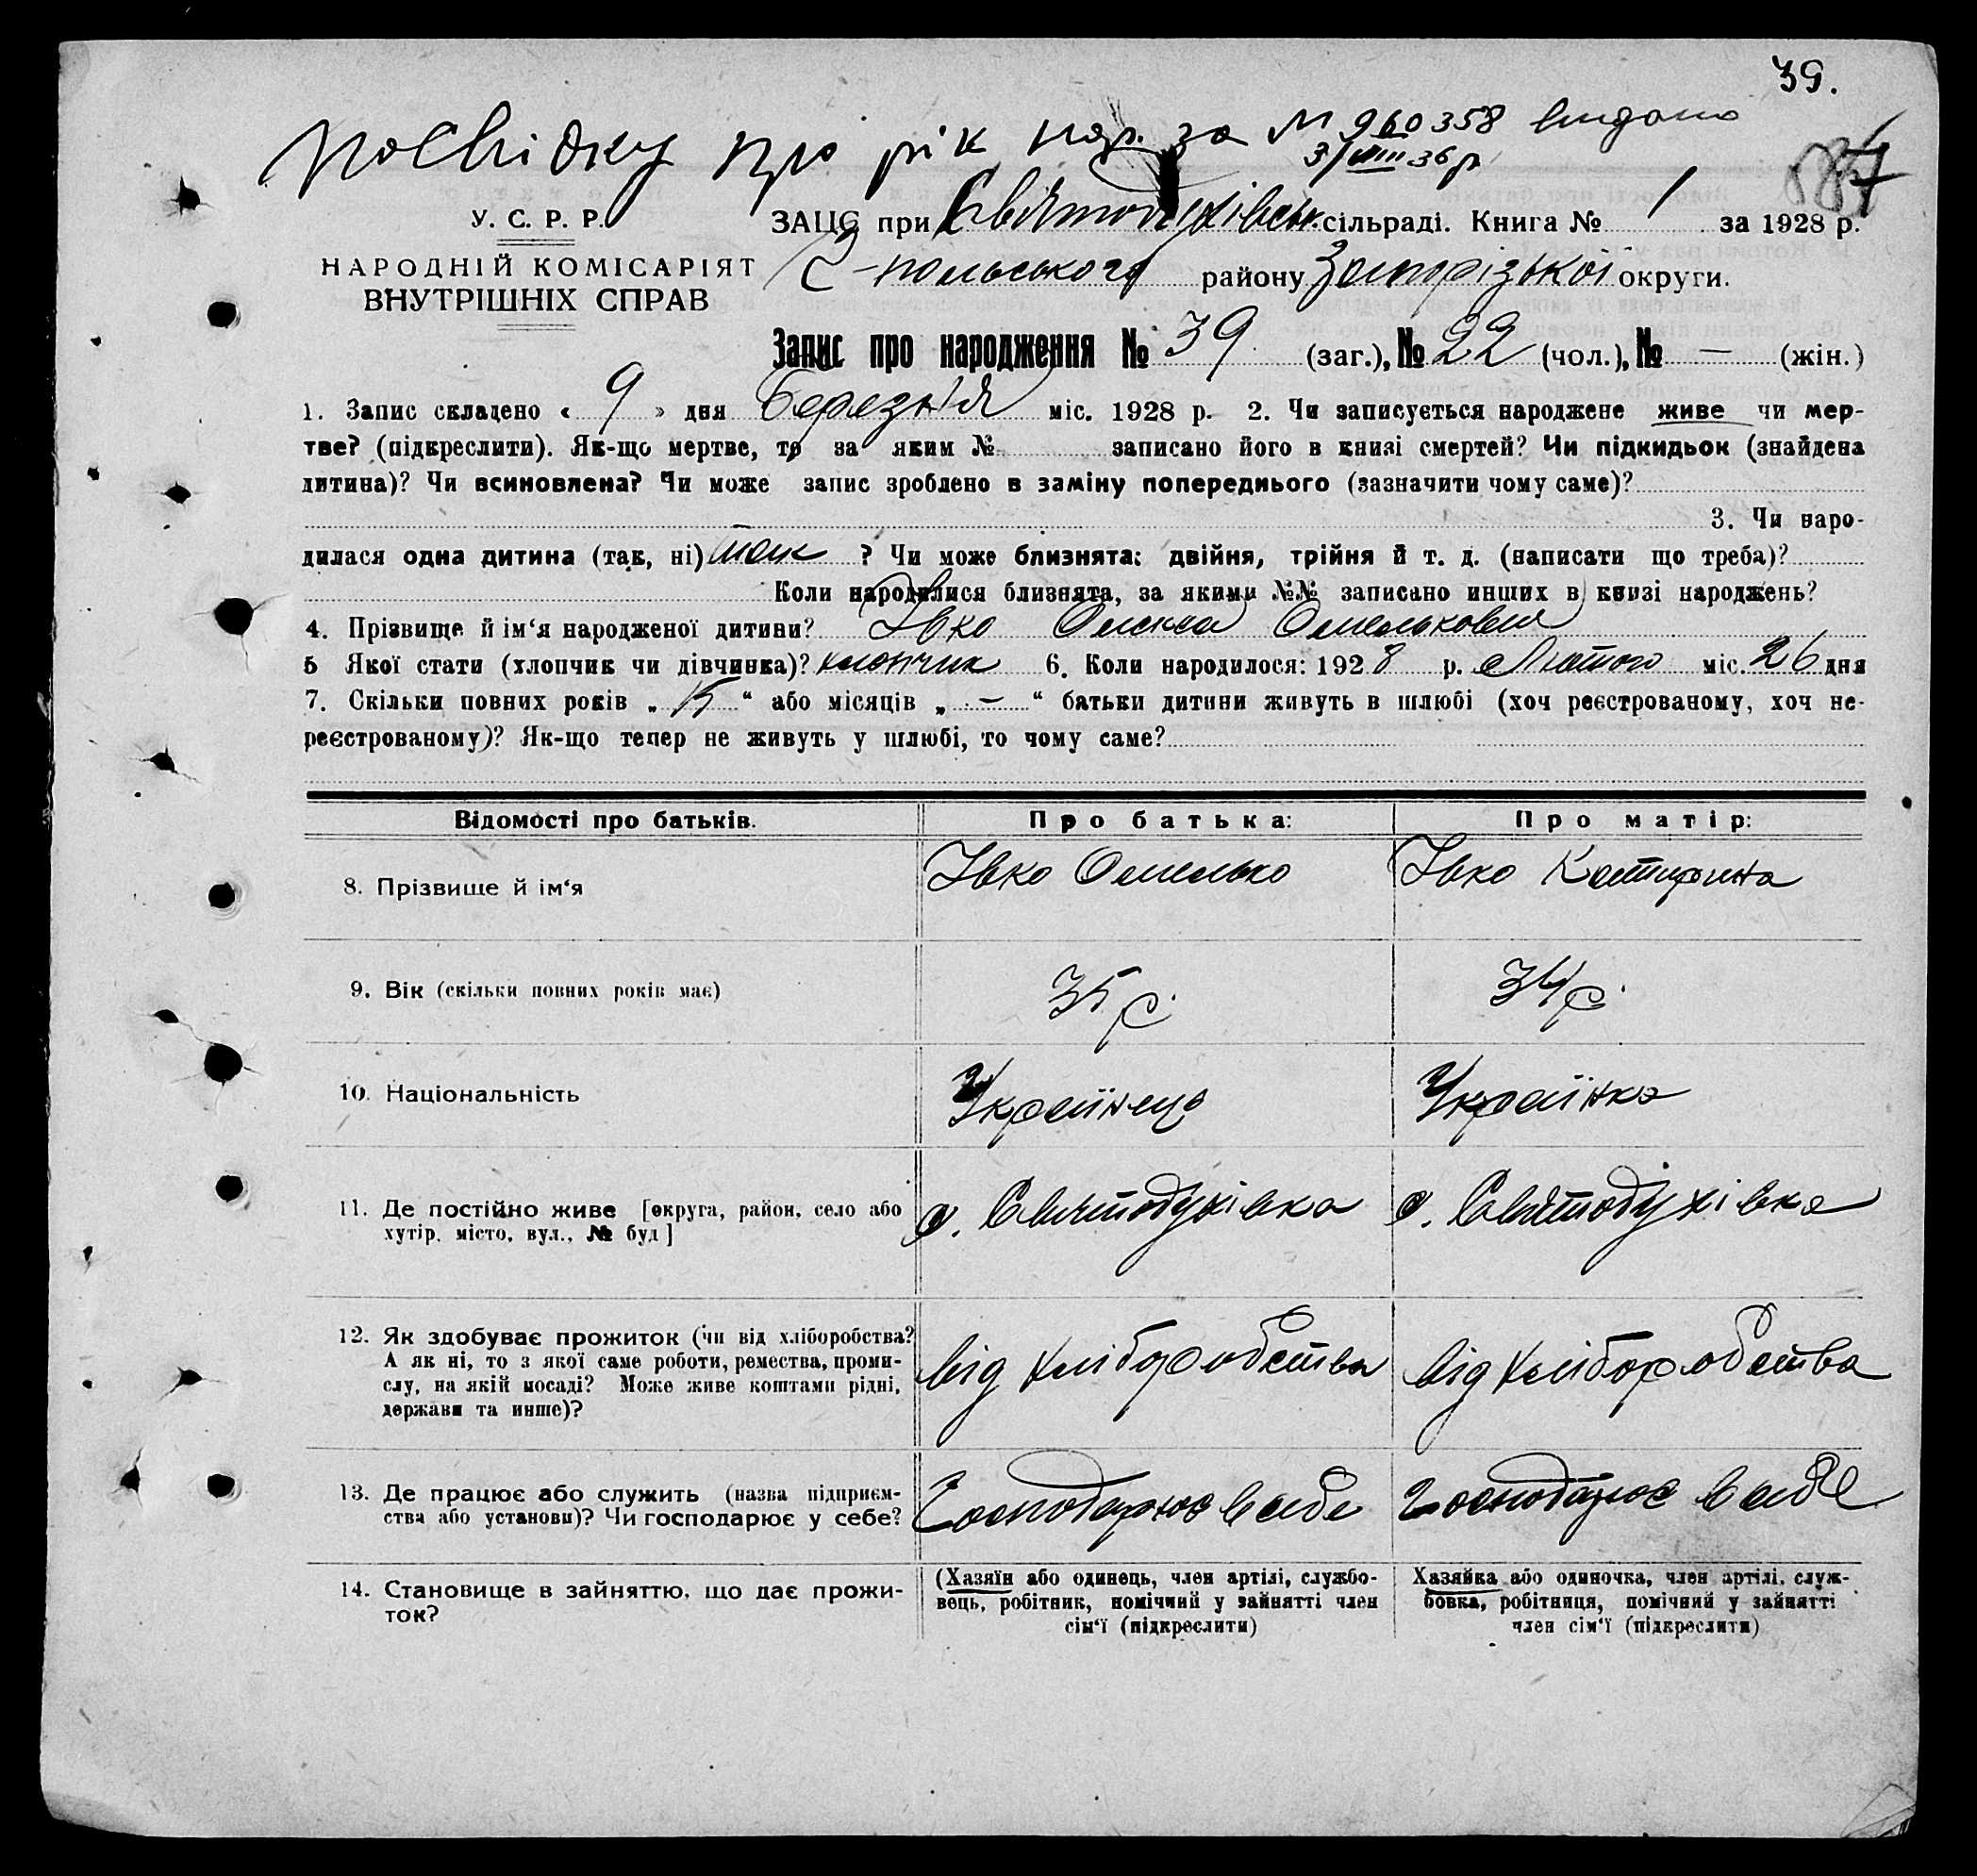 39.
Посвідку про рік нар. за № 960358 видано
3/VIII 36 р.
У. С. Р. Р.
НАРОДНІЙ КОМІСАРІЯТ
ВНУТРІШНІХ СПРАВ
ЗАЦС при Святодухівськ. сільраді. Книга № 1 за 1928 р.
Ч-польського району Запорізької округи.
Запис про народження № 39 (заг.), № 22 (чол.), № — (жін.)
1. Запис складено « 9 » дня Березня міс. 1928 р. 2. Чи записується народжене живе чи мер-
тве? (підкреслити). Як-що мертве, то за яким № записано його в книзі смертей? Чи підкидьок (знайдена
дитина)? Чи всиновлена? Чи може запис зроблено в заміну попереднього (зазначити чому саме)?
3. Чи наро-
дилася одна дитина (так, ні) так ? Чи може близнята: двійня, трійня й т. д. (написати що треба)?
Коли народилися близнята, за якими №№ записано инших в книзі народжень?
4. Прізвище й ім‘я народженої дитини? Івко Олекса Омелькович
5 Якої стати (хлопчик чи дівчинка)? хлопчик 6. Коли народилося: 1928 р. Лютого міс. 26 дня
7. Скільки повних років „ 15 “ або місяців „ — “ батьки дитини живуть в шлюбі (хоч реєстрованому, хоч не-
реєстрованому)? Як-що тепер не живуть у шлюбі, то чому саме?
Відомості про батьків. Про батька: Про матір:
8. Прізвище й ім‘я Івко Омелько Івко Катирина
9. Вік (скільки повних років має) 35 р. 34 р.
10. Національність Українець Українка
11. Де постійно живе [округа, район, село або
хутір, місто, вул., № буд] с. Святодухівка с. Святодухівка
12. Як здобуває прожиток (чи від хліборобства?
А як ні, то з якої саме роботи, ремества, проми-
слу, на якій посаді? Може живе коштами рідні,
держави та инше)? від хліборобства від хліборобства
13. Де працює або служить (назва підприєм-
ства або установи)? Чи господарює у себе? Господарює в себе Господарює в себе
14. Становище в зайняттю, що дає прожи-
ток?
(Хазяїн або одинець, член артілі, службо-
вець, робітник, помічний у зайнятті член
сім‘ї (підкреслити)
Хазяйка або одиночка, член артілі, служ-
бовка, робітниця, помічний у зайнятті
член сім‘ї (підкреслити)